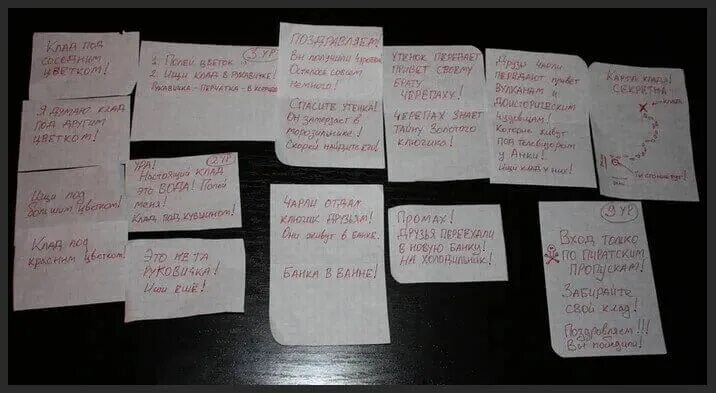 КЛАД ПОД
СОСЕДНИМ
ЦВЕТКОМ!
Я ДУМАЮ КЛАД
ПОД ДРУГИМ
ЦВЕТКОМ!
Ищи под
большим цветком!
Клад под
красным цветком!
3 УР
1. Полей цветок
2. Ищи клад в рукавичке!
Рукавичка - перчатка - в
УРА!
2 УР
Настоящий клад
это ВОДА! Полей
меня!
Клад под кувшином!
Это не та
рукавичка!
Ищи ещё!
ПОЗДРАВЛЯЕМ!
Вы получили 4 уровень
Осталось совсем
немного!
Спасите утенка!
Он замерзает в
морозильнике!
Скорей найдите его!
ЧАРЛИ ОТДАЛ
КЛЮЧИК ДРУЗЬЯМ!
Они живут в банке.
БАНКА В ВАННЕ!
Утенок передает
привет своему
брату
ЧЕРЕПАХУ!
ЧЕРЕПАХ ЗНАЕТ
ТАЙНУ ЗОЛОТОГО
КЛЮЧИКА!
ПРОМАХ!
ДРУЗЬЯ ПЕРЕЕХАЛИ
В НОВУЮ БАНКУ!
НА ХОЛОДИЛЬНИК!
Друзья Чарли
передают привет
вулканам и
доисторическим
ящерицам!
Которые живут
под телевизором
у Аньки!
Ищи клад у них!
КАРТА КЛАДА!
СЕКРЕТНА
клад
Ты стоишь тут!
9 УР
ВХОД ТОЛЬКО
ПО ПИРАТСКИМ
ПРОПУСКАМ!
Забирайте
свой клад!
Поздравляем!!!
Вы победили!